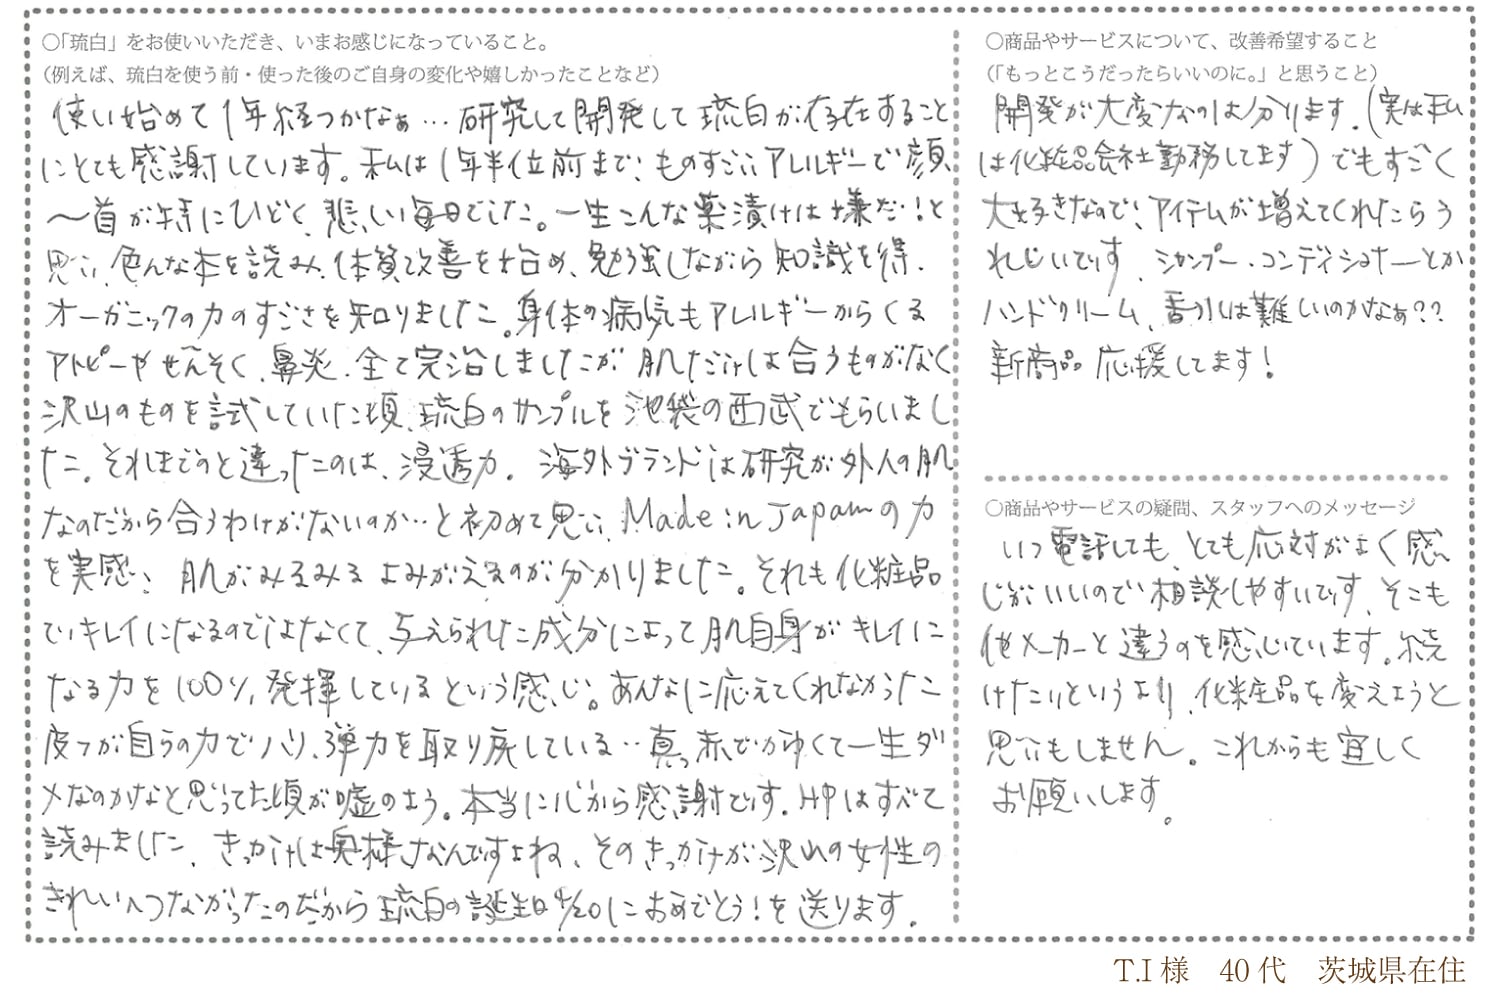 ○「琉白」をお使いいただき、いまお感じになっていること。
（例えば、琉白を使う前・使った後のご自身の変化や嬉しかったことなど）
使い始めて1年経つかなぁ…研究して開発して琉白が存在すること
にとても感謝しています。私は1年半位前まで、ものすごいアレルギーで顔
〜首が特にひどく、悲しい毎日でした。一生こんな薬漬けは嫌だ！と
思い、色んな本を読み、体質改善を始め、勉強しながら知識を得、
オーガニックの力のすごさを知りました。身体の病気もアレルギーからくる
アトピーやぜんそく、鼻炎、全て完治しましたが肌だけは合うものがなく
沢山のものを試していた頃、琉白のサンプルを池袋の西武でもらいまし
た。それまでのと違ったのは、浸透力。海外ブランドは研究が外人の肌
なのだから合うわけがないのか…と初めて思い、Made in Japanの力
を実感、肌がみるみるよみがえるのが分かりました。それも化粧品
でキレイになるのではなくて、与えられた成分によって肌自身がキレイに
なる力を100％発揮しているという感じ。あんなに応えてくれなかった
皮フが自らの力でハリ、弾力を取り戻している‥真っ赤でかゆくて一生ダ
メなのかなと思ってた頃が嘘のよう。本当に心から感謝です。HPはすべて
読みました、きっかけは奥様なんですよね、そのきっかけが沢山の女性の
きれいへつながったのだから琉白の誕生日4/20におめでとう！を送ります。
○商品やサービスについて、改善希望すること
（「もっとこうだったらいいのに。」と思うこと）
開発が大変なのは分ります。（実は私
は化粧品会社勤務してます）でもすごく
大好きなので、アイテムが増えてくれたらう
れしいです、シャンプー・コンディショナーとか
ハンドクリーム、香りは難しいのかなぁ？？
新商品応援してます！
○商品やサービスの疑問、スタッフへのメッセージ
いつ電話しても、とても応対がよく感
じがいいので相談しやすいです、そこも
他メーカーと違うのを感じています。続
けたいというより、化粧品を変えようと
思いもしません。これからも宜しく
お願いします。
T.I様　40代　茨城県在住